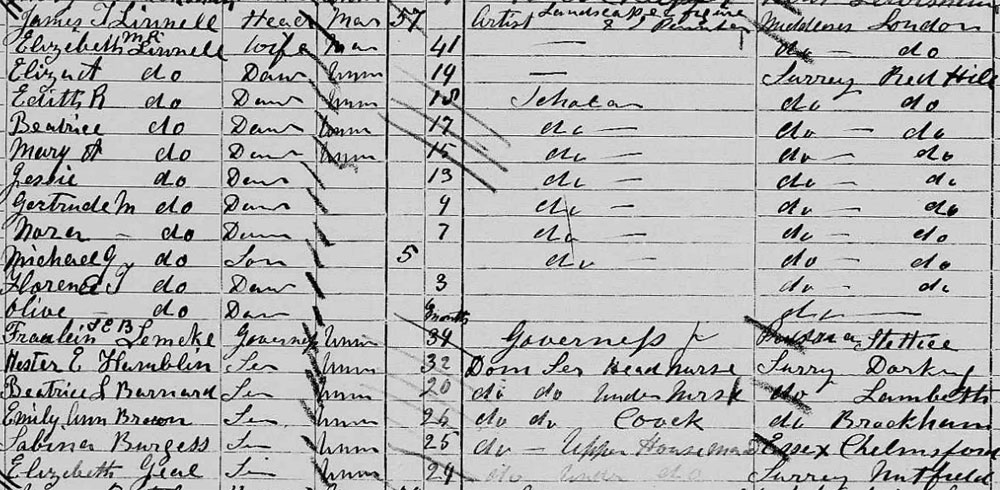 James T Linnell Head Mar 57 Artist Landscape & Figure Painter Middlesex London
Elizabeth Linnell Wife Mar 41 — do — do
Eliza do Daur Unm 19 — Surrey Red Hill
Edith R do Daur Unm 18 Scholar do do
Beatrice do Daur Unm 17 do — do — do
Mary A do Daur Unm 15 do — do — do
Jessie do Daur 13 do — do — do
Gertrude M do Daur 9 do — do — do
Nora — do Daur 7 do — do — do
Michael G do Son 5 do — do — do
Florence do Daur 3 do — do
Olive — do Daur months do —
Fraulein Lemcke Governess Unm 34 Governess Prussia Stettin
Hester E Hamblin Ser Unm 32 Dom Ser Head nurse Surry Dorking
Beatrice S Barnard Ser Unm 20 do do Under Nurse do Lambeth
Emily Ann Brown Ser Unm 26 do do Coock do Brockham
Sabina Burgess Ser Unm 25 do — Upper Housemaid Essex Chelmsford
Elizabeth Ser Unm 24 do Under do Surrey Nutfield